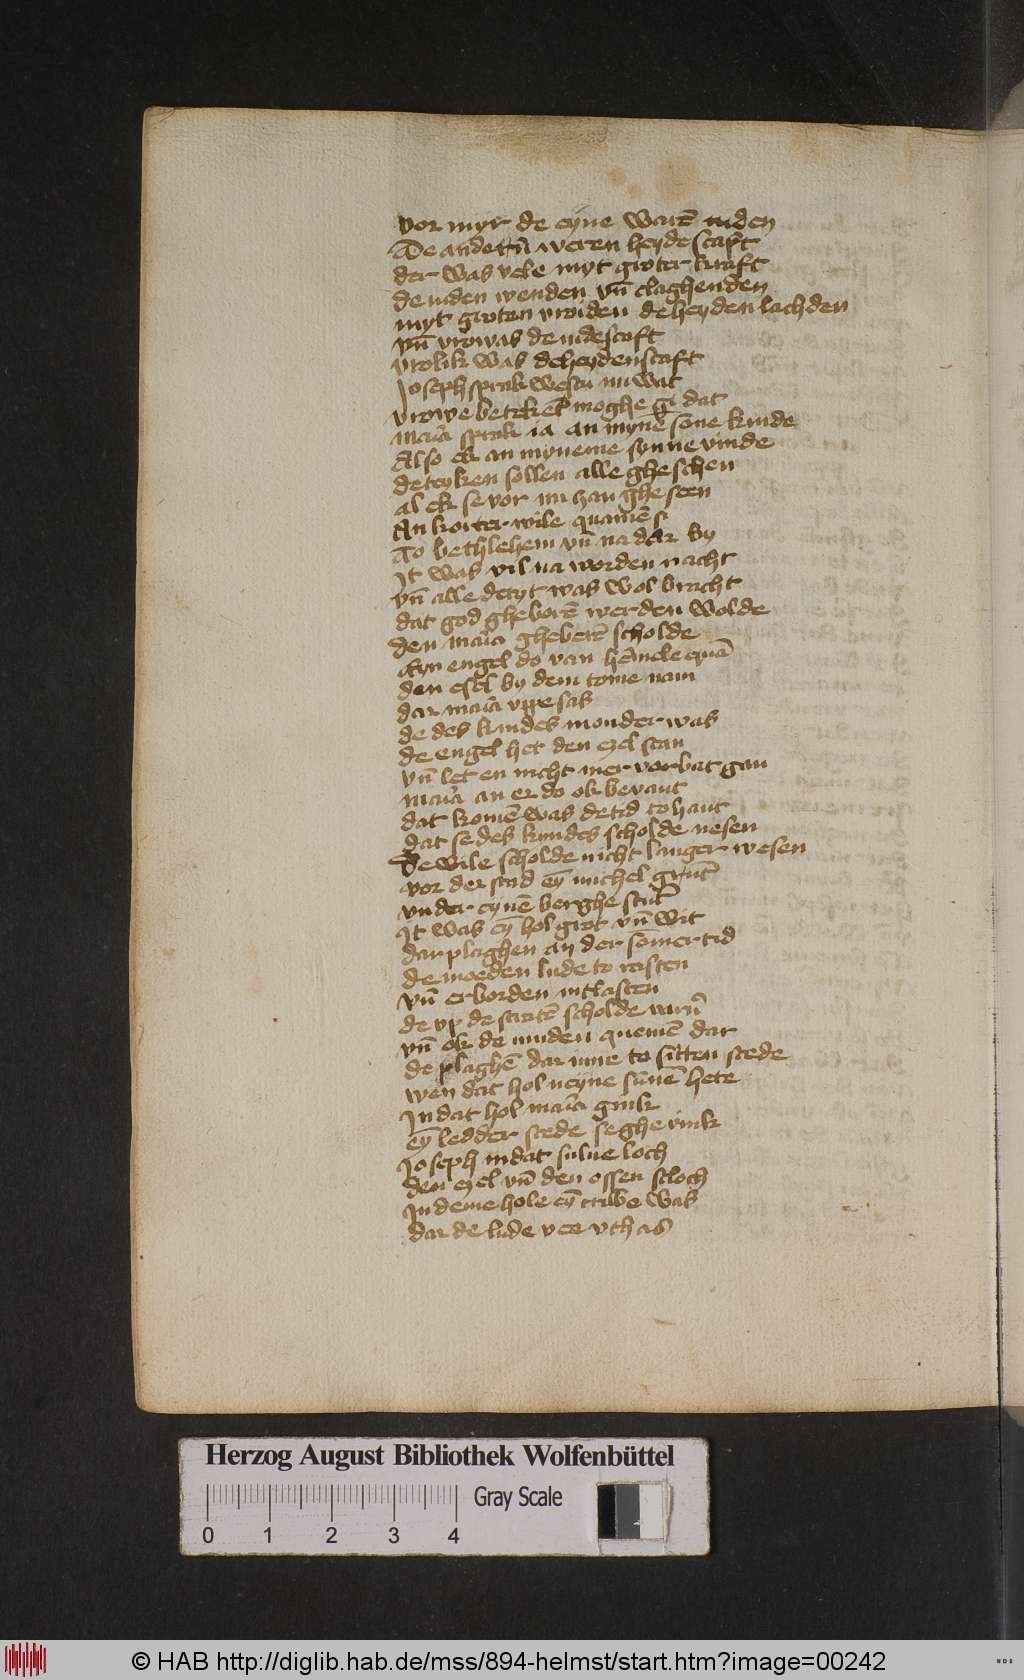 vor myr de eyne warē iuden
De anderū weren heydescaft
der was vele myt groter kraft
de iuden wenden vn̄ claghenden
myt groten vroiden de heyden lachden
vn̄ vrowas de iudescaft
vrolik was de heydenscaft
Joseph sprak westu nu wat
vrowe beteklet moghe gi dat
maria sprak ia an mynē sone kinde
Also ek an myneme synne vinde
de teyken sollen alle gheschen
al ek se vor nu han gheseen
An korter wile quamē si
To bethlehem vn̄ na dar by
It was vil na worden nacht
vn̄ alle de tyt was wol bracht
dat god gheborē werden wolde
den maria gheberē scholde
Eyn engel do van hemele quā
den esel by dem tome nam
dar maria vppe sas
de des kindes mouder was
de engel het den ezel stan
vn̄ let en nicht mer vorbat gan
maria an er do ok bevant
dat komē was de tid to hant
dat se des kindes scholde nesen
De wile scholde nicht langer wesen
vor der stad eȳ michel grutē
vnder eynē berghe stut
It was eȳ hol grot vn̄ wit
dar plaghen an der somer tid
de moeden lude to rasten
vn̄ er borden intlasten
de vp de startē scholde varn
vn̄ ok de muden quemē dar
de plaghē dar inne to sitten stede
wen dat hol neyne sunnē hete
In dat hol maria gink
eȳ ledder stede se ghevink
Joseph in dat sulue loch
den ezel vn̄ den ossen scloch
In deme hole eȳ cribbe was
dar de lude vee vth as
Herzog August Bibliothek Wolfenbüttel
0 1 2 3 4 Gray Scale
© HAB http://diglib.hab.de/mss/894-helmst/start.htm?image=00242